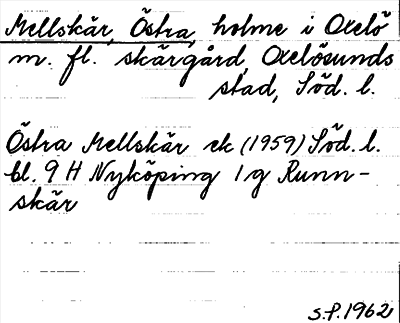 Mellskär, Östra, holme i Oxelö
m. fl. skärgård, Oxelösunds
stad, Söd. l.
Östra Mellskär ek (1959) Söd. l.
bl. 9 H Nyköping 1g Runn-
skär
S.P. 1962